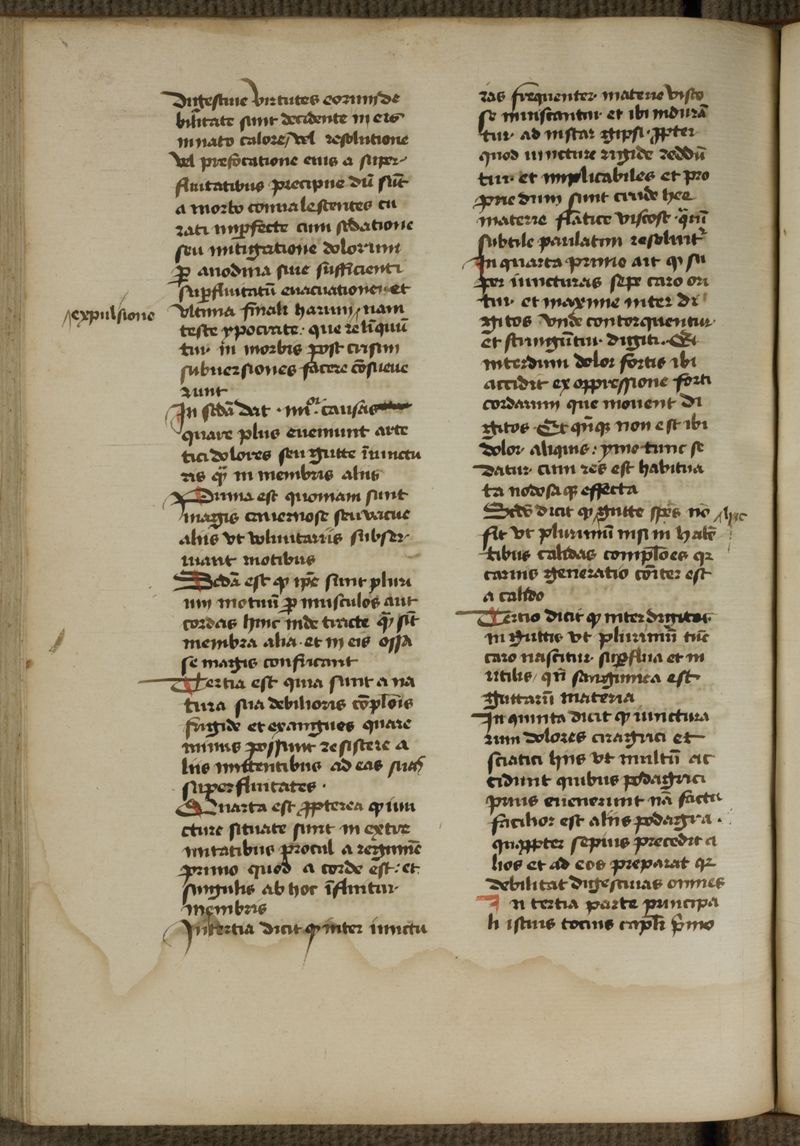 digestiue virtutes eorum sic de
bilitate sunt decidente in eis
innato calore / vel resolutione
vel prefocatione eius a super
fluitatibus precipue dū sūt
a morbo conualescentes cu
rati imperfecte cum sedatione
seu mitigatione dolorum
ꝑ anodina siue sufficienti
suꝑfluitatū euacuatione et
expulsione
vltima finali harum / nam
teste ypocrate · que reliquū
tur in morbis post crisim
subuersiones facere cōsueue
runt
In scđa dat · iiiiᵒʳ · causas
quare plus eueniunt arte
tici dolores seu gutte iūnctu
ris q̄ in membris aliis
Prima est quoniam sunt
magis cauernose seu vacue
aliis vt voluntariis subser
uiant motibus
Scđa est ꝙ ip̄e sunt pluri
um motuū ꝑ musculos aut
cordas hinc inde tracte q̄ sūt
membra alia · et in eis ossa
se magis confricant
Tertia est quia sunt a na
tura sua debilioris cōplōis
frigide et exangues quare
minus possunt resistere a
liis mittentibus ad eas suas
superfluitates ·
Quarta est ꝓpterea ꝙ iun
cture situate sunt in extre
mitatibus procul a regimīe
primo quod a corde est : et
singulis ab hoc īfluitur
membris
In tertia dicit ꝙ inter iunctu
ras frequenter materie visco
se ministrantur et ibi indurā
tur ad instar gipsi · ꝓpter
quod iuncture rigide reddū
tur et implicabiles et pro
prie dum sunt crude hee
materie flatice viscose q̄rū
subtile paulatim resoluitur
In quarta primo ait ꝙ su
per iuncturas sepe caro ori
tur et maxime inter di
gitos vnde contorquentur
et stringūtur digiti · Et
interdum dolor fortis ibi
accidit ex oppressione forti
cordarum que mouent di
gitos Et qn̄ꝙ non est ibi
dolor aliquis : ymo tunc se
datur cum res est habitua
ta nodosaꝙ effecta
Scđo dicit ꝙ gutte sp̄es nō / hec
fit vt plurimū nisi in habē
tibus calidas complōes qr
carnis generatio cōiter est
a calido
Tertio dicit ꝙ inter digitos
in guttis vt plurimū tūc
caro nascitur suꝑflua et in
utilis / qn̄ sanguinea est
guttarū materia
In quinta dicit ꝙ iunctura
rum dolores ciragrici et
sciatici hiis vt multū ac
cidunt quibus podagrici
prius euenerunt nā factu
facilior est aliis podagra ·
quaꝓpter sepius precedit a
lios et ad eos preparat qr
debilitat digestiuas omnes
In tertia parte principa
li istius tocius capli p̄mo